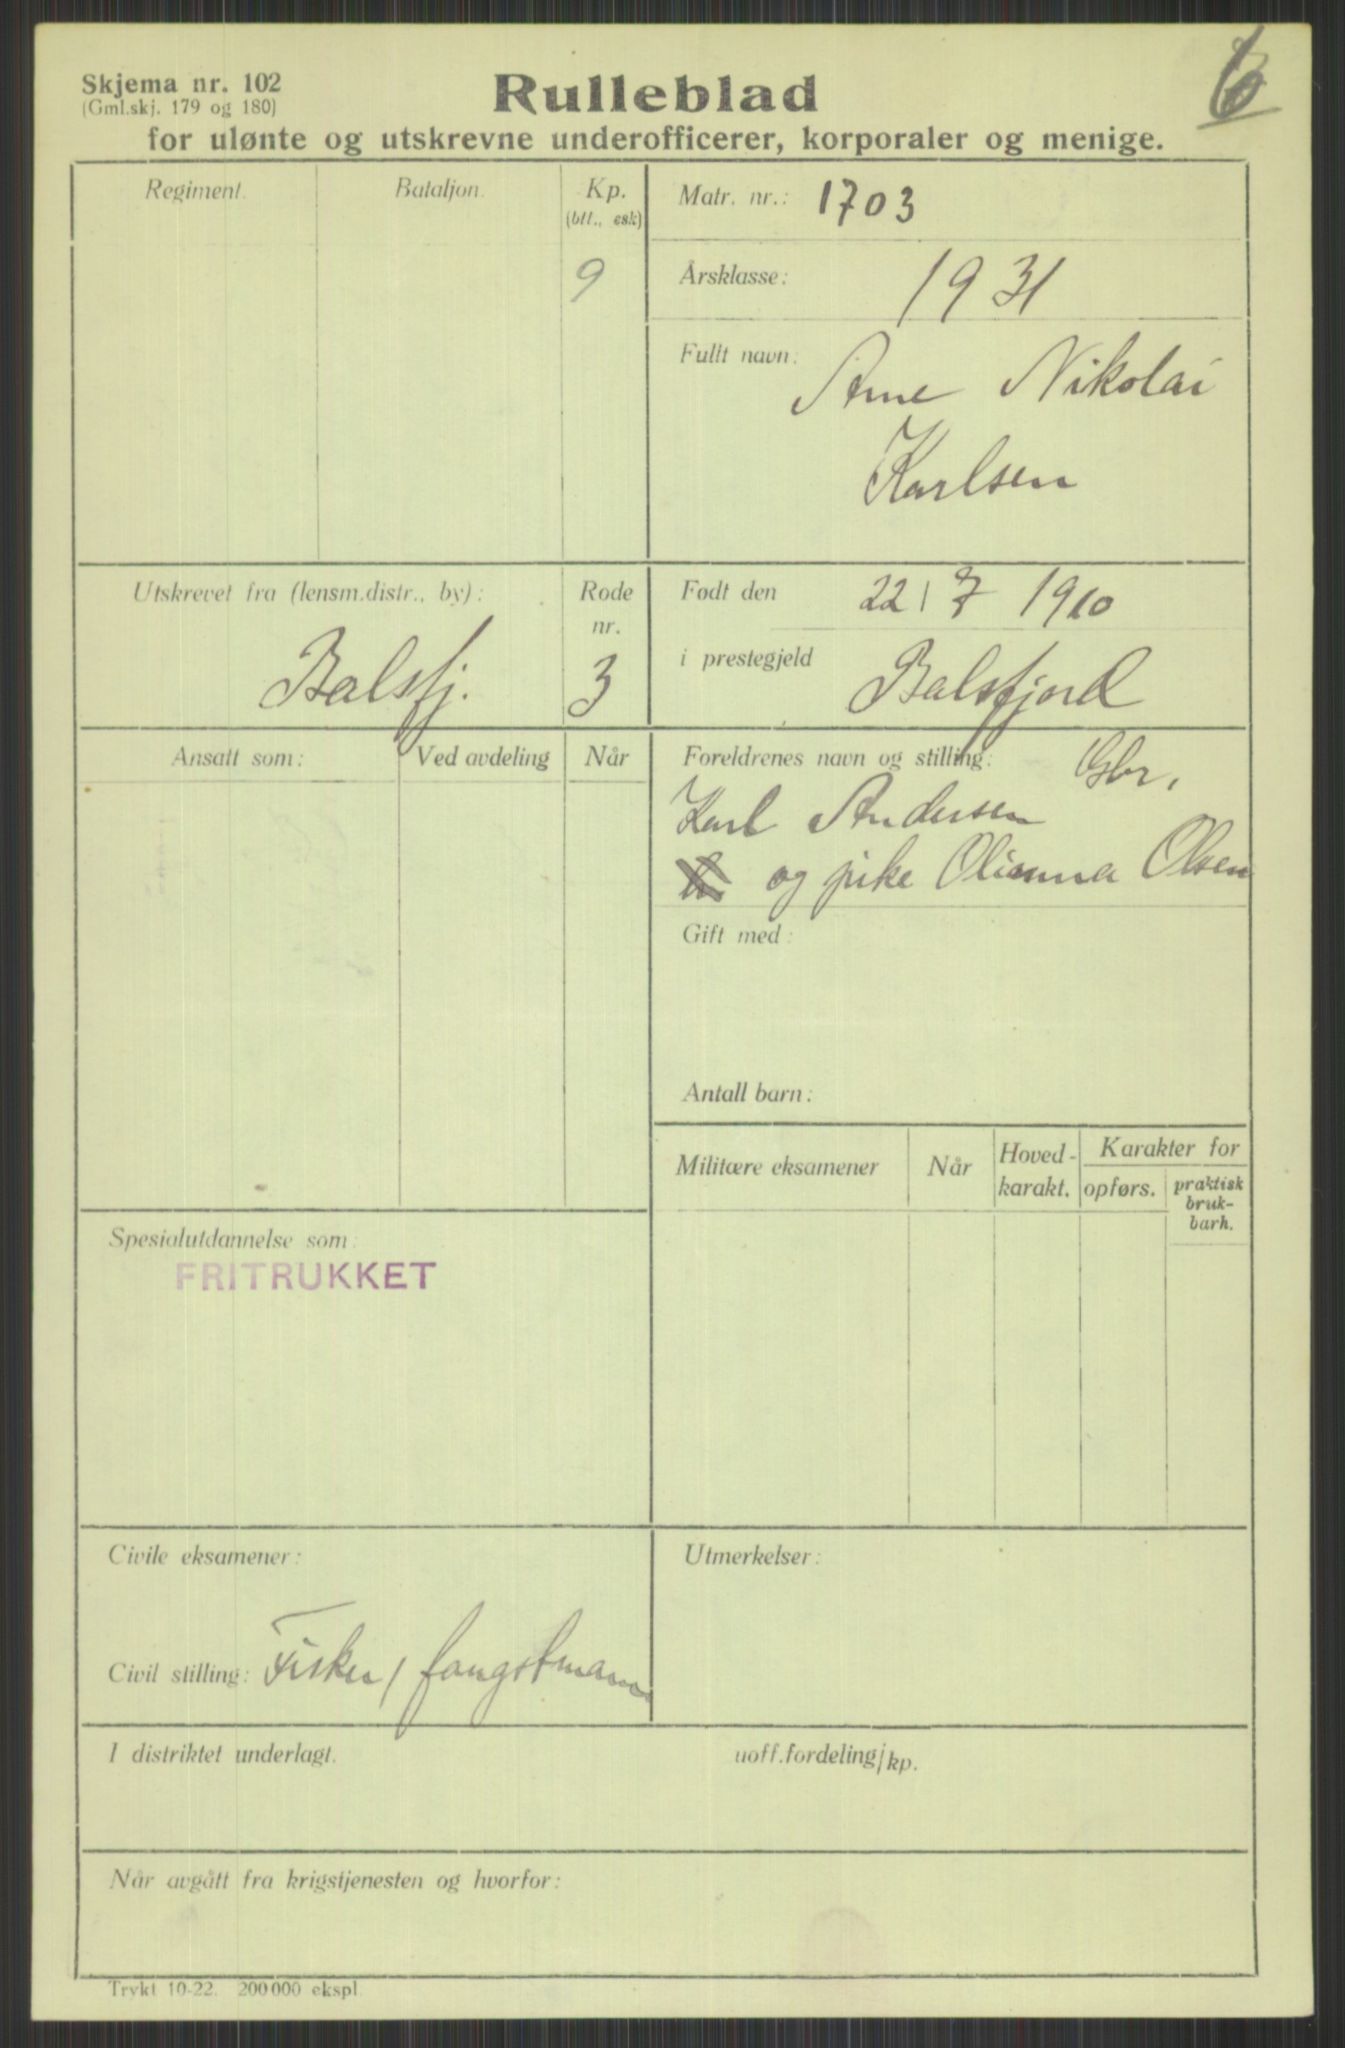 Skjema nr. 102
(Gml.skj. 179 og 180)
Rulleblad
for ulønte og utskrevne underofficerer, korporaler og menige.
Regiment.
Bataljon.
Kp.
(btl., esk)
9
Matr. nr.: 1703
Årsklasse: 1931
Fullt navn: Arne Nikolai
Karlsen
Utskrevet fra (lensm.distr., by):
Balsfj.
Rode
nr.
3
Født den 22/7 1910
i prestegjeld Balsfjord
Ansatt som:
Ved avdeling
Når
Foreldrenes navn og stilling: Gbr,
Karl Andersen
og pike Olianna Olsen
Gift med:
Antall barn:
Militære eksamener
Når
Hoved-
karakt.
Karakter for
opførs.
praktisk
bruk-
barh.
Spesialutdannelse som:
FRITRUKKET
Civile eksamener:
Civil stilling: Fisker / fangstmann
Utmerkelser:
I distriktet underlagt.
uoff.fordeling/kp.
Når avgått fra krigstjenesten og hvorfor:
Trykt 10-22. 200 000 ekspl.